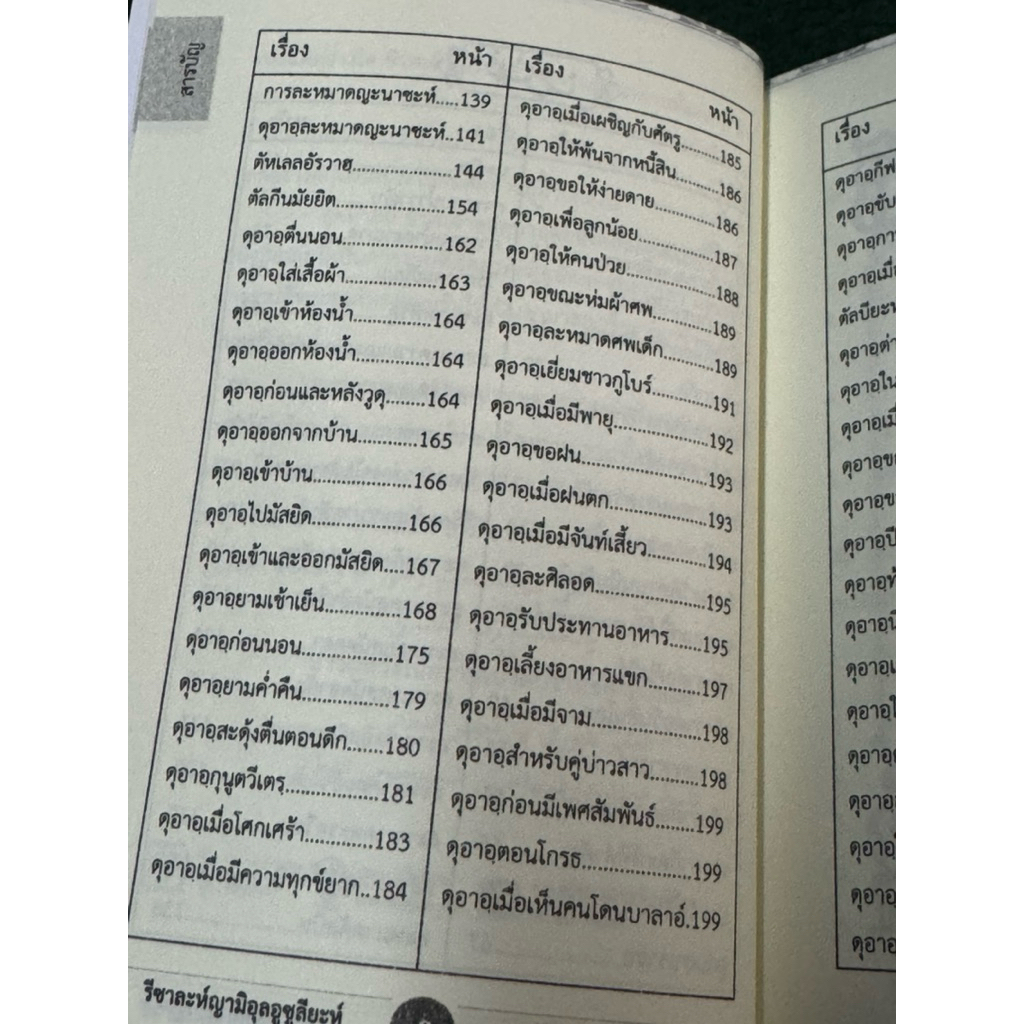 สารบัญ
เรื่อง หน้า
การละหมาดญะนาซะห์.....139
ดุอาอฺละหมาดญะนาซะห์..141
ตัหเลลอัรวาฮฺ......................144
ตัลกีนมัยยิต........................154
ดุอาอฺตื่นนอน......................162
ดุอาอฺใส่เสื้อผ้า....................163
ดุอาอฺเข้าห้องน้ำ..................164
ดุอาอฺออกห้องน้ำ.................164
ดุอาอฺก่อนและหลังวูดุ........164
ดุอาอฺออกจากบ้าน...............165
ดุอาอฺเข้าบ้าน......................166
ดุอาอฺไปมัสยิด.....................166
ดุอาอฺเข้าและออกมัสยิด....167
ดุอาอฺยามเช้าเย็น................168
ดุอาอฺก่อนนอน...................175
ดุอาอฺยามค่ำคืน..................179
ดุอาอฺสะดุ้งตื่นตอนดึก.......180
ดุอาอฺกุนูตวีเตรฺ...................181
ดุอาอฺเมื่อโศกเศร้า..............183
ดุอาอฺเมื่อมีความทุกข์ยาก..184
เรื่อง หน้า
ดุอาอฺเมื่อเผชิญกับศัตรู.........185
ดุอาอฺให้พ้นจากหนี้สิน..........186
ดุอาอฺขอให้ง่ายดาย..............186
ดุอาอฺเพื่อลูกน้อย.................187
ดุอาอฺให้คนป่วย...................188
ดุอาอฺขณะห่มผ้าศพ.............189
ดุอาอฺละหมาดศพเด็ก...........189
ดุอาอฺเยี่ยมชาวกูโบร์............191
ดุอาอฺเมื่อมีพายุ....................192
ดุอาอฺขอฝน..........................193
ดุอาอฺเมื่อฝนตก....................193
ดุอาอฺเมื่อมีจันท์เสี้ยว............194
ดุอาอฺละศิลอด......................195
ดุอาอฺรับประทานอาหาร.......195
ดุอาอฺเลี้ยงอาหารแขก..........197
ดุอาอฺเมื่อมีจาม....................198
ดุอาอฺสำหรับคู่บ่าวสาว.........198
ดุอาอฺก่อนมีเพศสัมพันธ์........199
ดุอาอฺตอนโกรธ....................199
ดุอาอฺเมื่อเห็นคนโดนบาลาอ์.199
รีซาละห์ญามิอุลอูซูลียะห์
เรื่อง